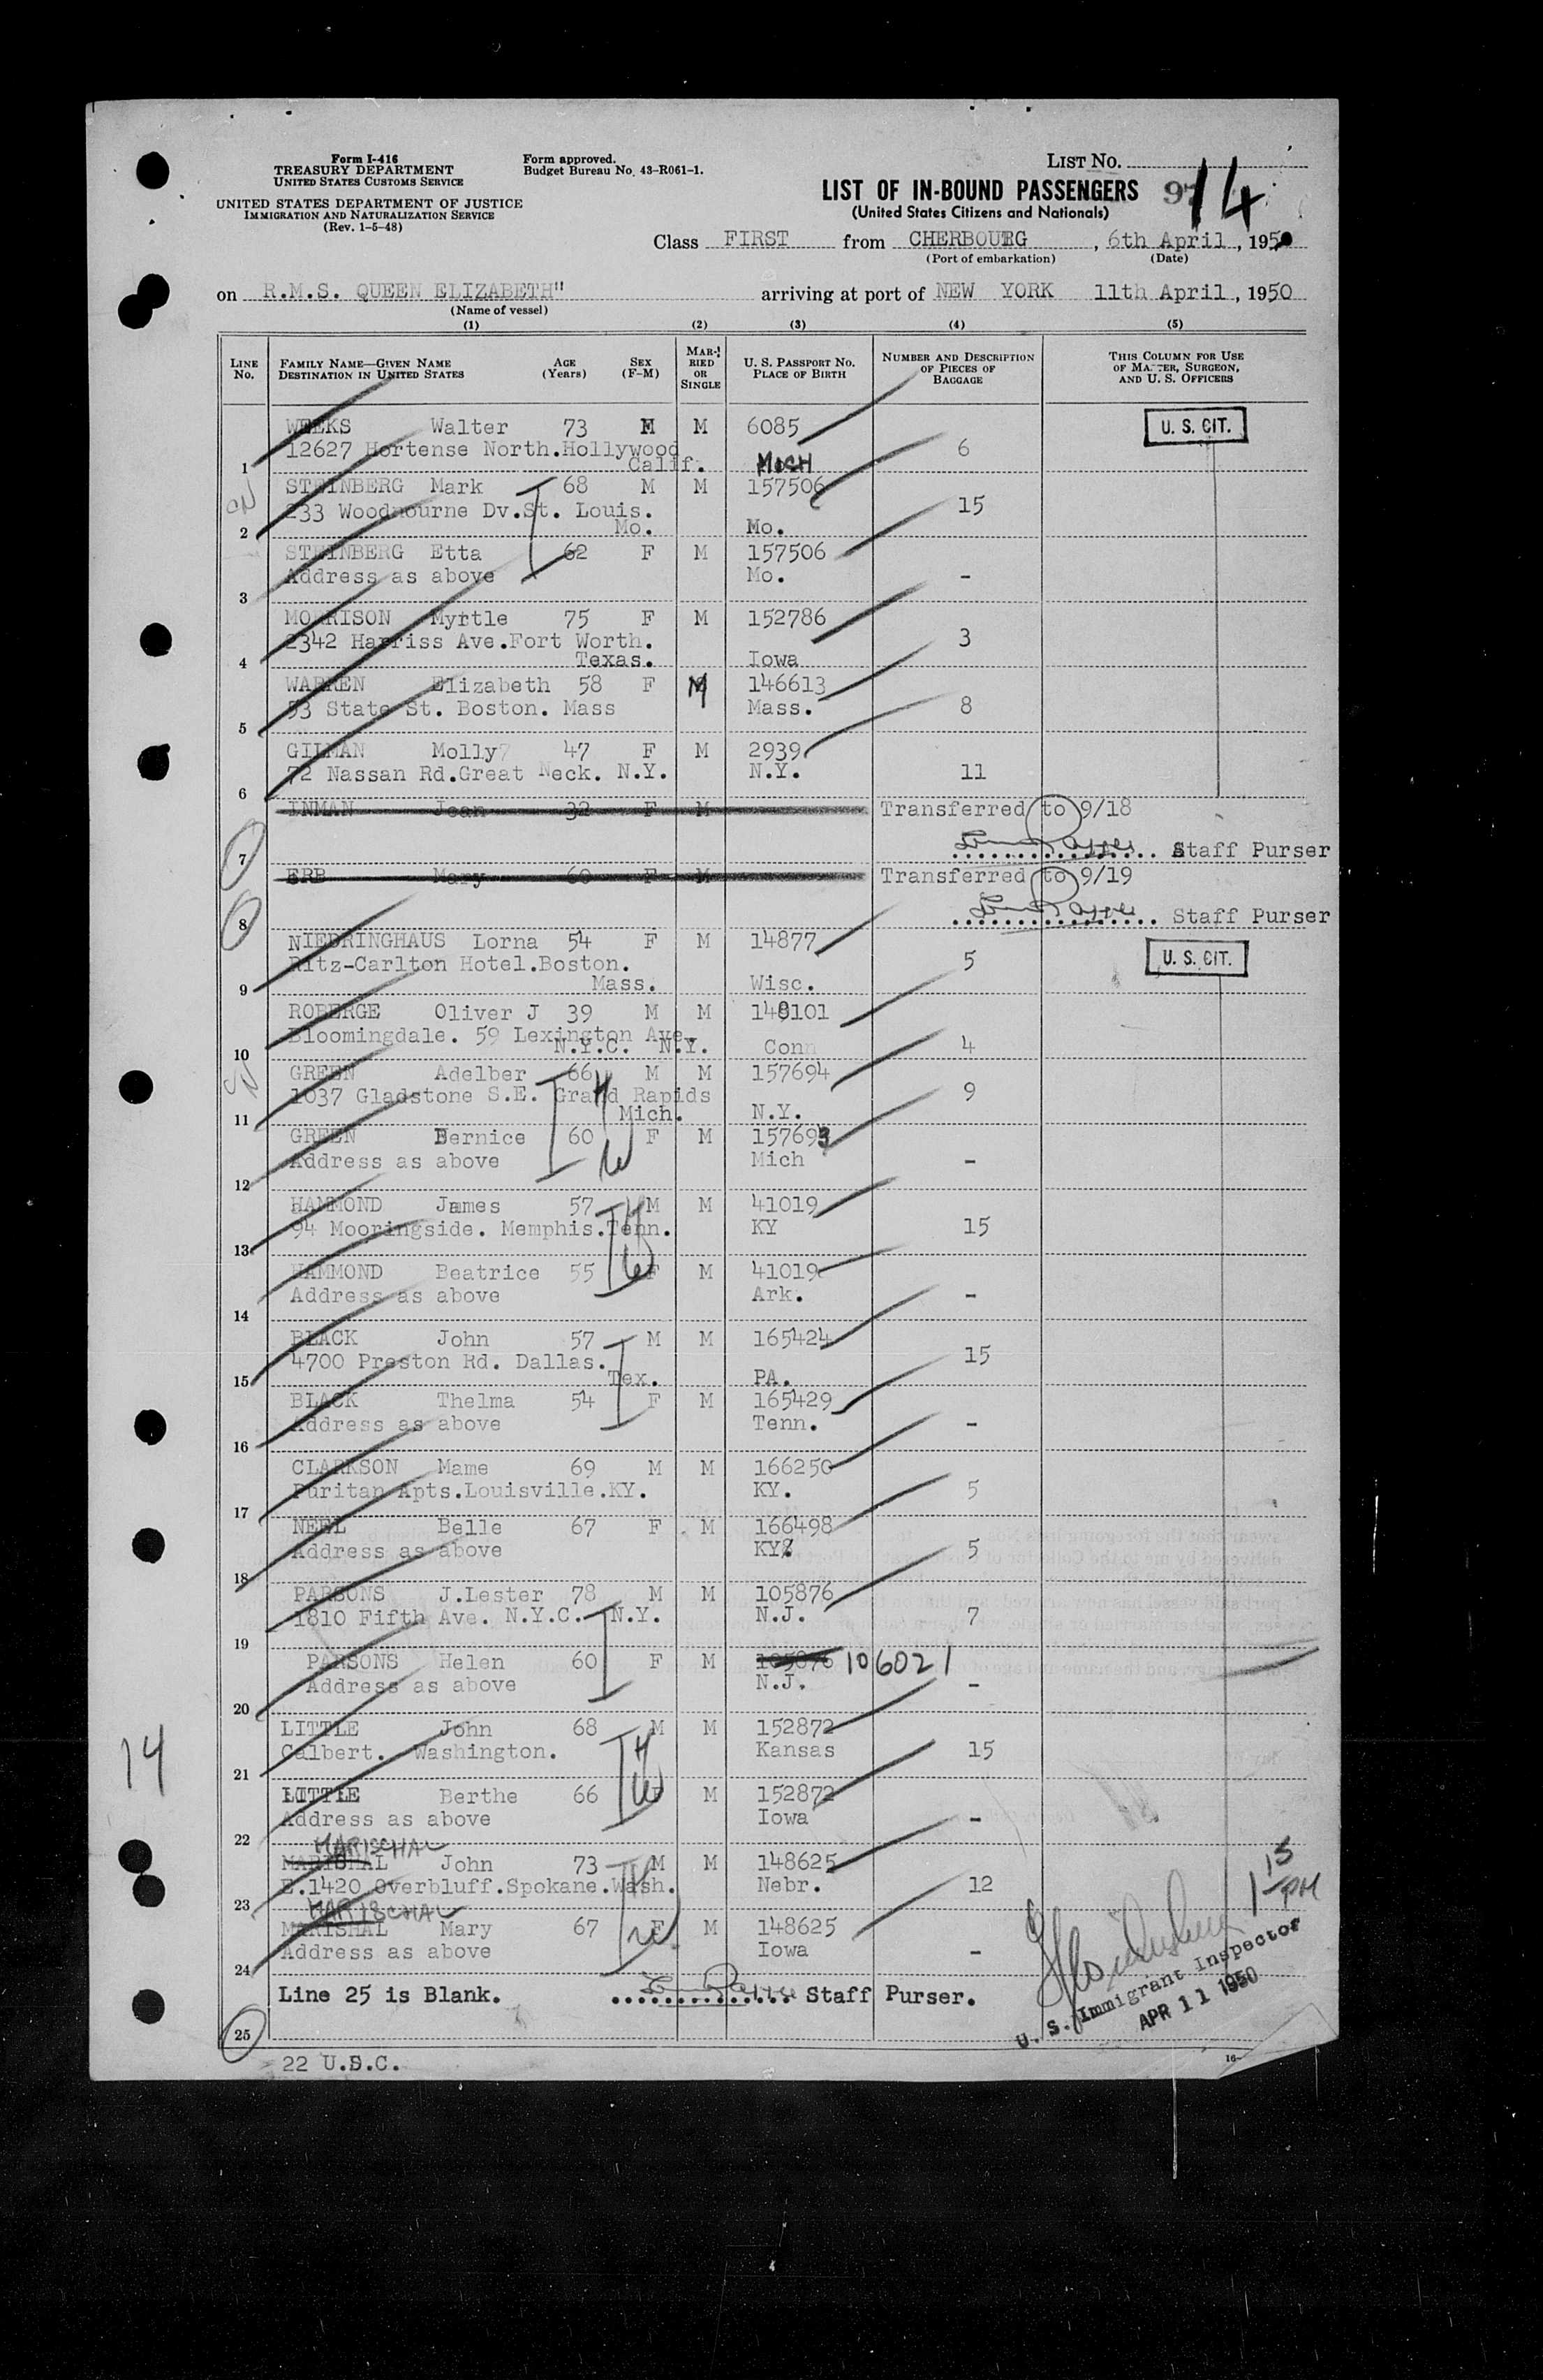 Form I-416
TREASURY DEPARTMENT
UNITED STATES CUSTOMS SERVICE
UNITED STATES DEPARTMENT OF JUSTICE
IMMIGRATION AND NATURALIZATION SERVICE
(Rev. 1-5-48)
Form approved.
Budget Bureau No. 43-R061-1.
LIST NO.
14
LIST OF IN-BOUND PASSENGERS
(United States Citizens and Nationals)
Class FIRST from CHERBOURG, 6th April, 1950
(Port of embarkation) (Date)
on R.M.S. QUEEN ELIZABETH" arriving at port of NEW YORK 11th April, 1950
(Name of vessel)
(1) (2) (3) (4) (5)
LINE No. FAMILY NAME—GIVEN NAME DESTINATION IN UNITED STATES AGE (Years) SEX (F-M) MARRIED OR SINGLE U. S. PASSPORT NO. PLACE OF BIRTH NUMBER AND DESCRIPTION OF PIECES OF BAGGAGE THIS COLUMN FOR USE OF MASTER, SURGEON, AND U. S. OFFICERS
WEEKS Walter 73 M M 6085 U. S. CIT.
12627 Hortense North.Hollywood 6
1 Calif. MICH
STEINBERG Mark 68 M M 157506
233 Woodbourne Dv.St. Louis. 15
2 Mo. Mo.
STEINBERG Etta 62 F M 157506
Address as above Mo. -
3
MORRISON Myrtle 75 F M 152786
2342 Harriss Ave.Fort Worth. 3
4 Texas. Iowa
WARREN Elizabeth 58 F M 146613
53 State St. Boston. Mass Mass. 8
5
GILMAN Molly 47 F M 2939
72 Nassan Rd.Great Neck. N.Y. N.Y. 11
6
INMAN Jean 32 F M Transferred to 9/18
7 Staff Purser
ERB Mary 60 F M Transferred to 9/19
8 Staff Purser
NIEDRINGHAUS Lorna 54 F M 14877 U. S. CIT.
Ritz-Carlton Hotel.Boston. 5
9 Mass. Wisc.
ROBERGE Oliver J 39 M M 149101
Bloomingdale. 59 Lexington Ave.
10 N.Y.C. N.Y. Conn 4
GREEN Adelber 66 M M 157694
1037 Gladstone S.E. Grand Rapids 9
11 Mich. N.Y.
GREEN Bernice 60 F M 157693
Address as above Mich -
12
HAMMOND James 57 M M 41019
94 Mooringside. Memphis.Tenn. KY 15
13
HAMMOND Beatrice 55 F M 41019
Address as above Ark. -
14
BLACK John 57 M M 165424
4700 Preston Rd. Dallas. 15
15 Tex. PA.
BLACK Thelma 54 F M 165429
Address as above Tenn. -
16
CLARKSON Mame 69 M M 166250
Puritan Apts.Louisville.KY. KY. 5
17
NEEL Belle 67 F M 166498
Address as above KY 5
18
PARSONS J.Lester 78 M M 105876
1810 Fifth Ave. N.Y.C. N.Y. N.J. 7
19
PARSONS Helen 60 F M 105876 106021
Address as above N.J. -
20
LITTLE John 68 M M 152872
Calbert. Washington. Kansas 15
21
LITTLE Berthe 66 F M 152872
Address as above Iowa -
22
MARISCHAL
MARISHAL John 73 M M 148625
E.1420 Overbluff.Spokane.Wash. Nebr. 12
23
MARISCHAL
MARISHAL Mary 67 F M 148625
Address as above Iowa -
24
Line 25 is Blank. Staff Purser.
25
22 U.S.C.
14
1 15 PM
U. S. Immigrant Inspector
APR 11 1950
16-